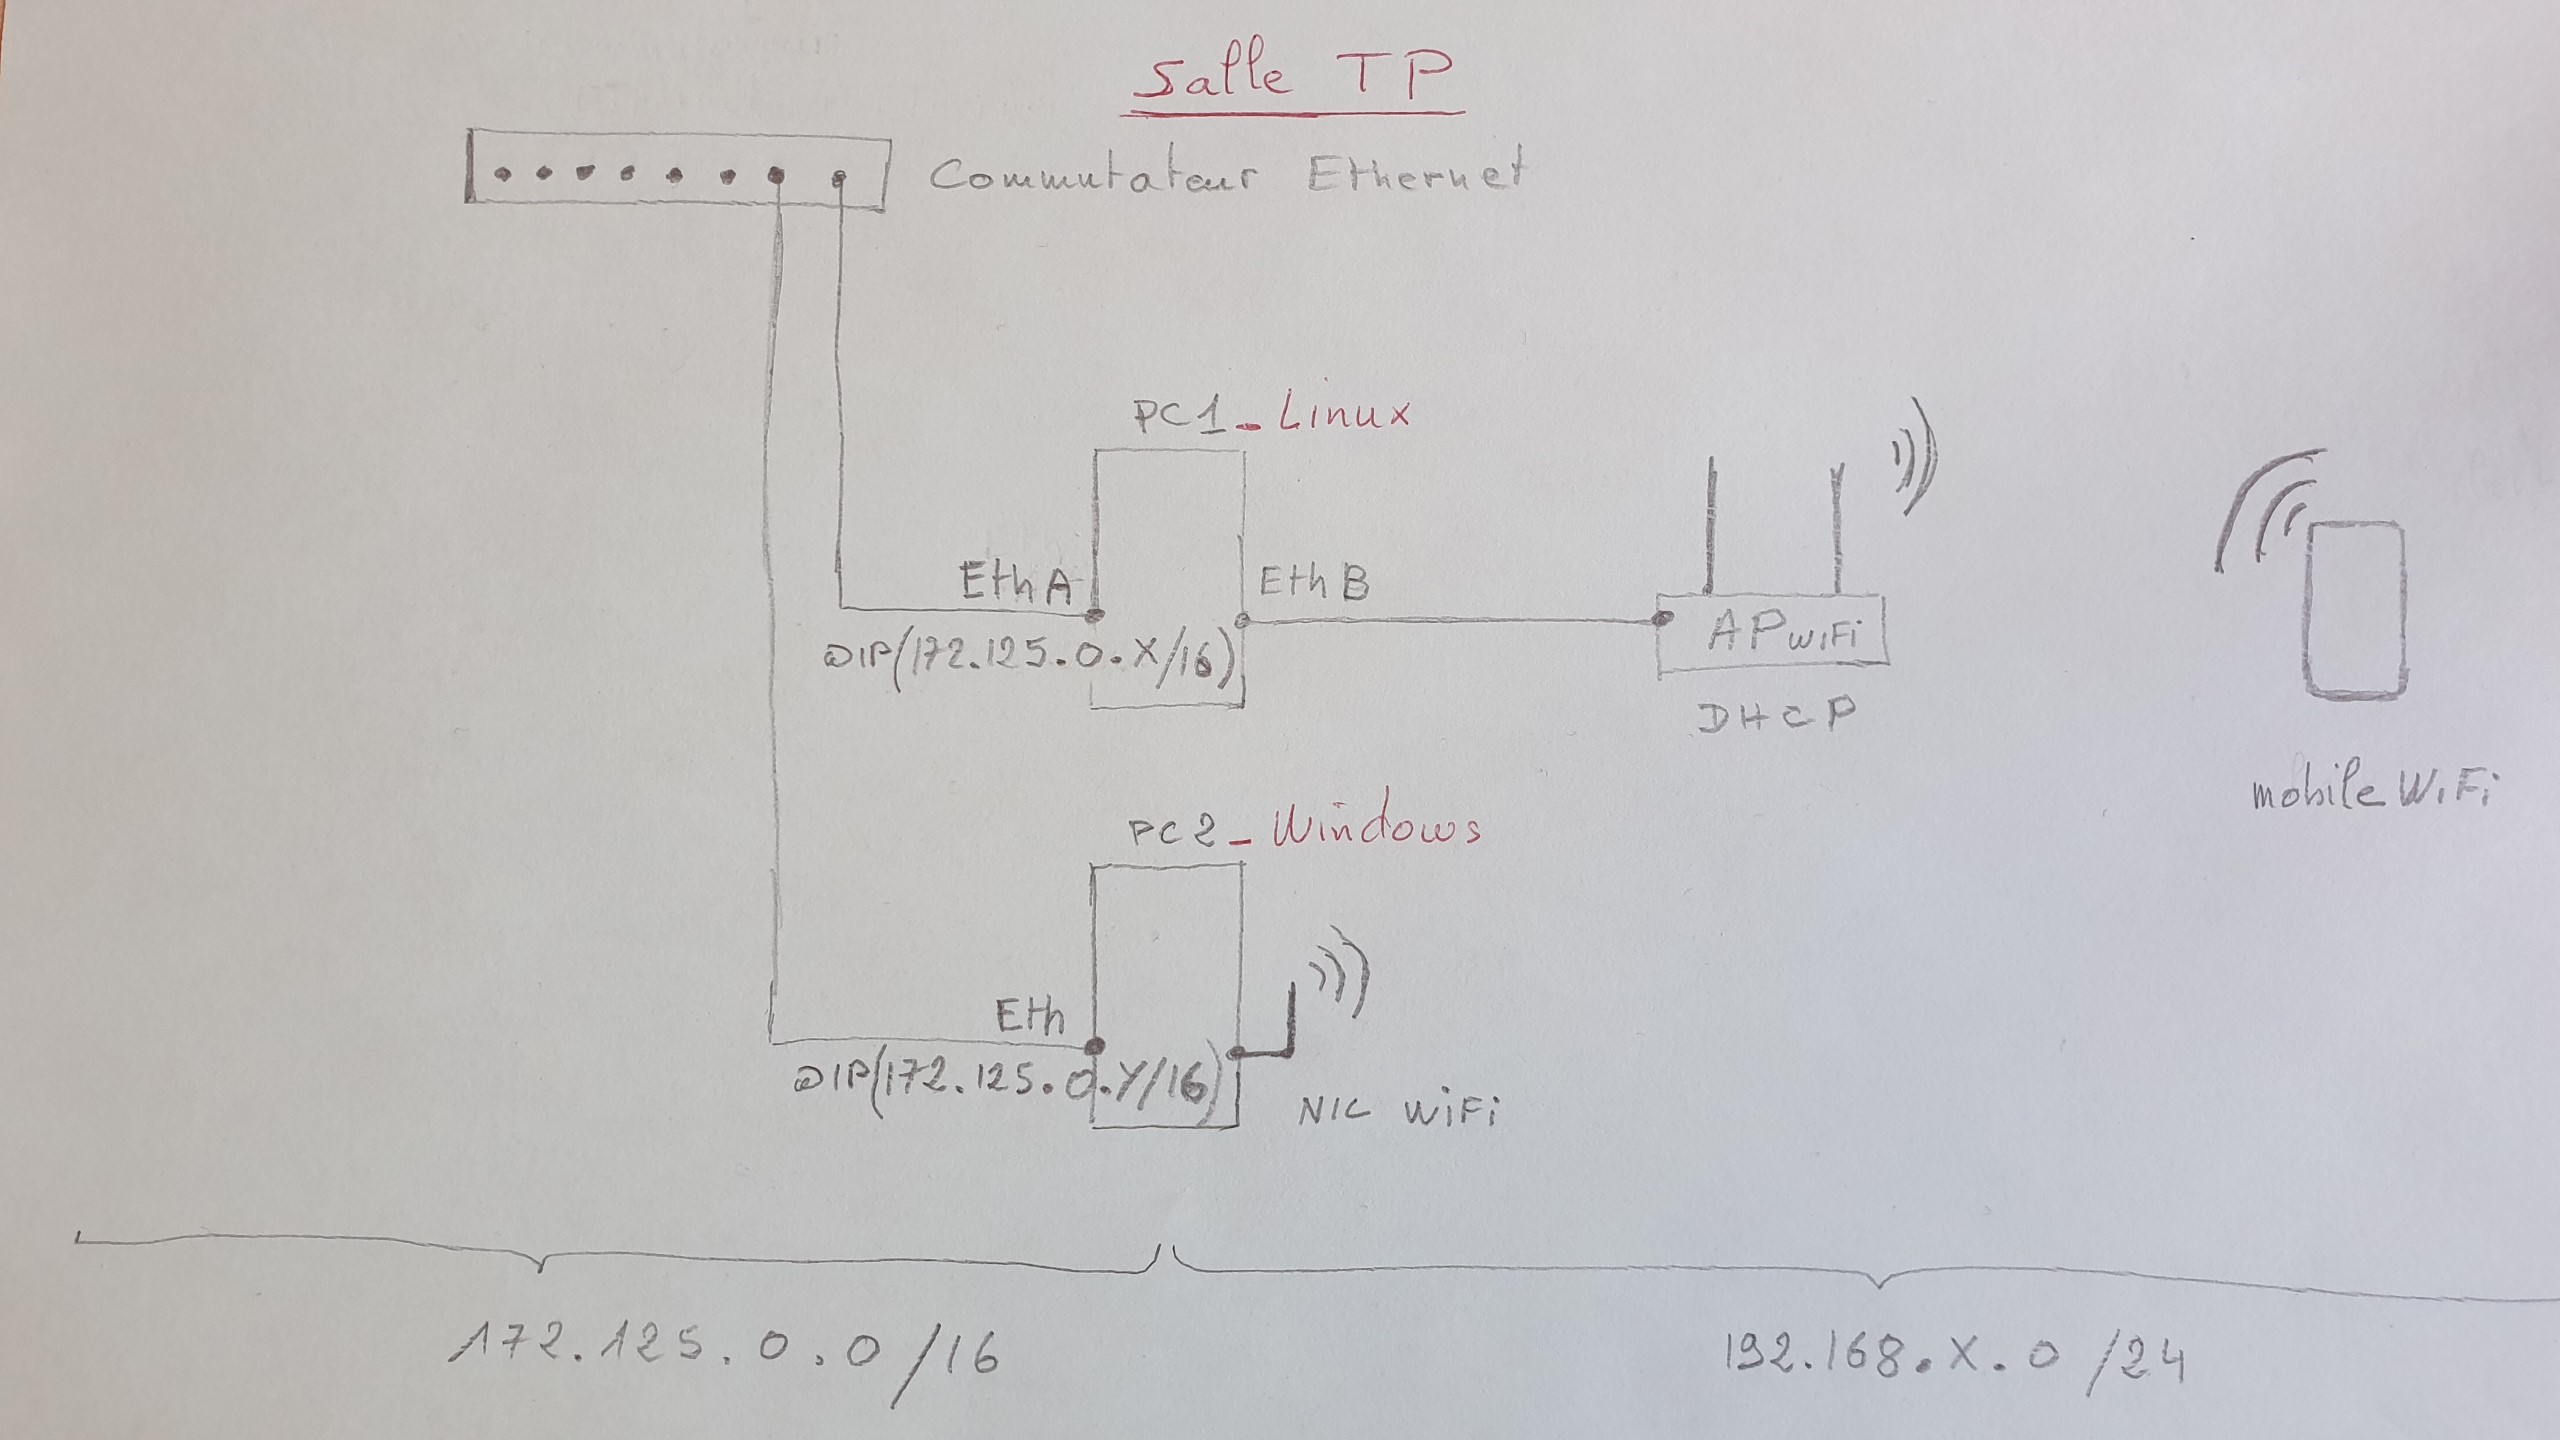 Salle TP
Commutateur Ethernet
PC1_Linux
EthA
EthB
@IP(172.125.0.X/16)
AP WiFi
DHCP
mobile WiFi
PC2_Windows
Eth
@IP(172.125.0.Y/16)
NIC WiFi
172.125.0.0/16
192.168.X.0/24